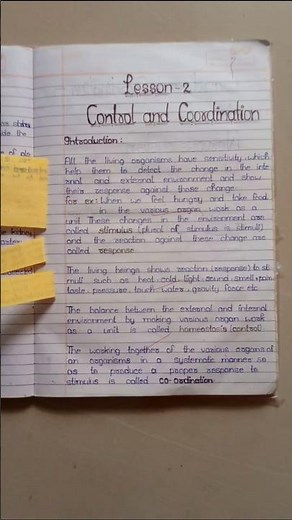 Lesson - 2
Control and Coordination
Introduction :
All the living organisms have sensitivity which
help them to detect the change in the inte
rnal and external environment and show
their response against those change.
for ex: When we feel hungry and take food
in the various organ work as a
unit These changes in the environment are
called stimulus (plural of stimulus is stimuli)
and the reaction against these change are
called response
The living beings shows reaction (response) to sti
muli such as heat cold light sound smell pain
taste pressure, touch water, gravity force etc
The balance between the external and internal
environment by making various organ work
as a unit is called homeostasis (control)
The working together of the various organs of
an organisms in a systematic manner so
as to produce a proper response to
stimulus is called co-ordination